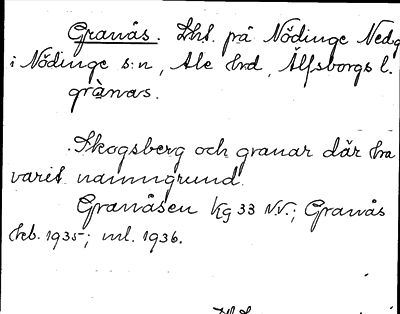 Granås. Lht. på Nödinge Nedg
i Nödinge s:n, Ale hrd, Älfsborgs l.
grànas.
Skogsberg och granar där ha
varit namngrund.
Granåsen Kg 33 N.V.; Granås
hcb. 1935; ml. 1936.